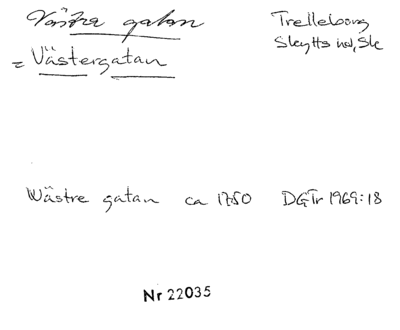 Västre gatan
= Västergatan
Trelleborg
Skytts hd, Sk
Wästre gatan ca 1750 DGTr 1969:18
Nr 22035